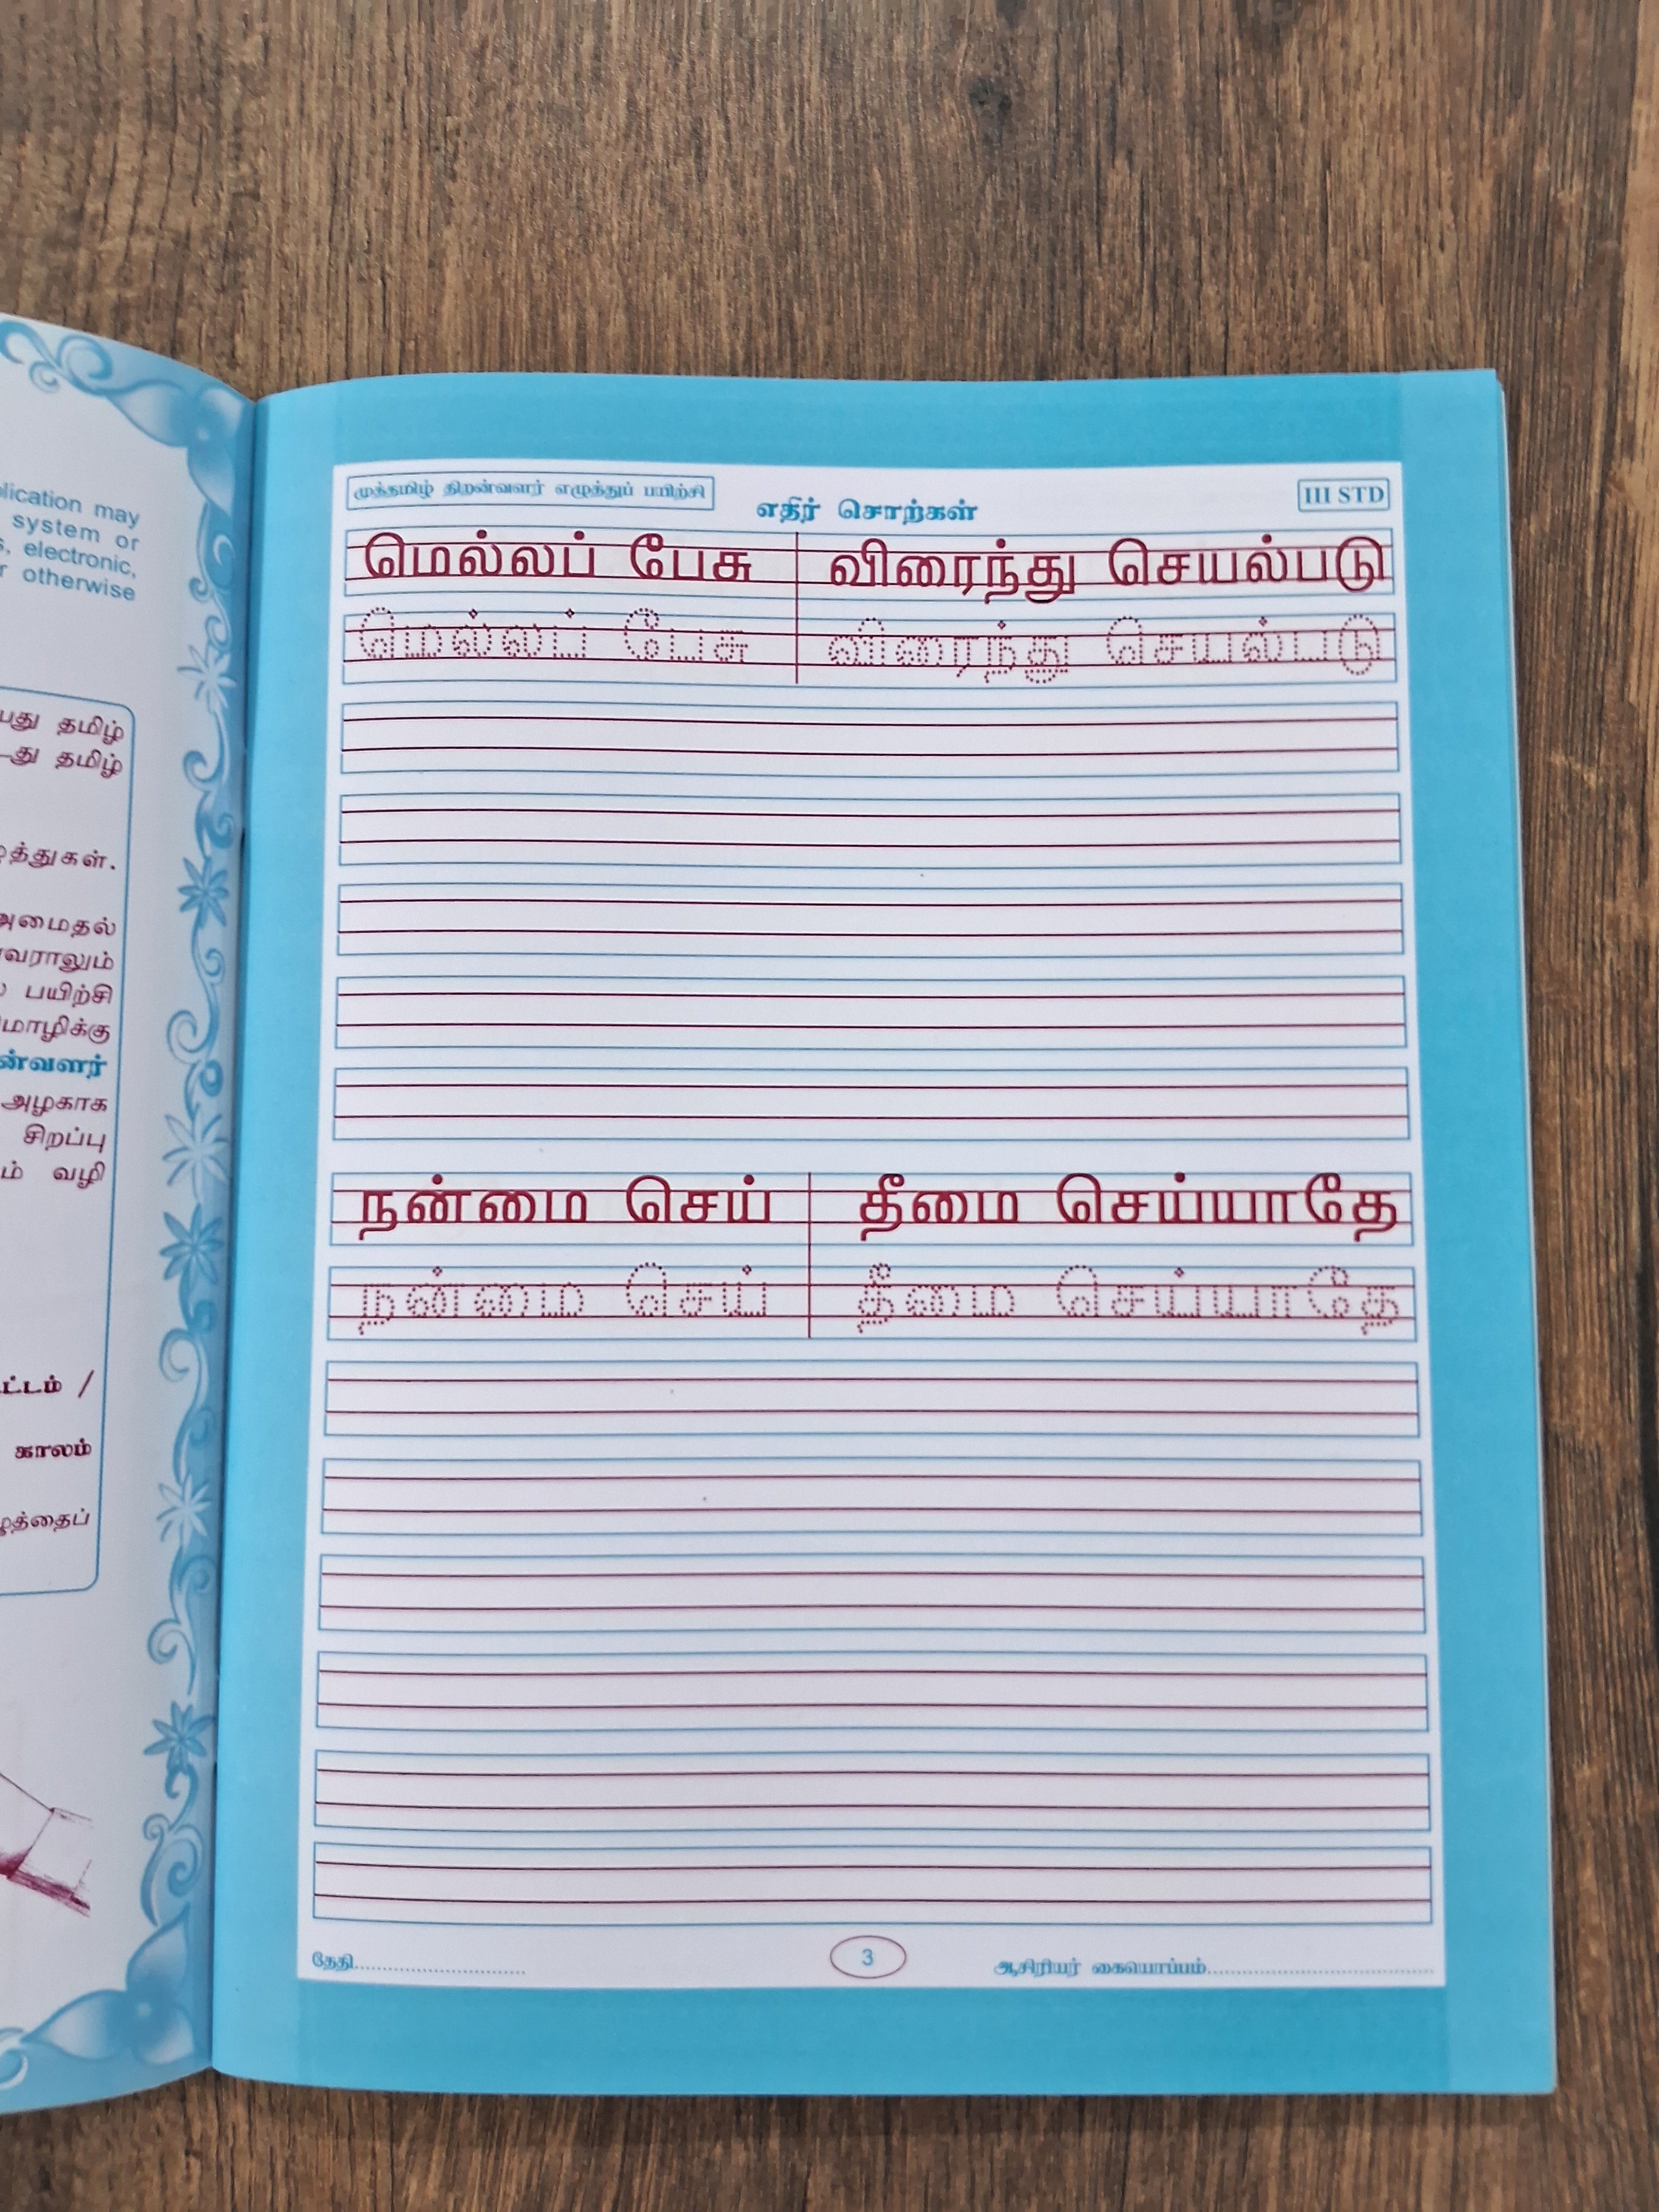 lication may
system or
, electronic,
r otherwise
தமிழ்
தமிழ்
த்துகள்.
அமைதல்
வராலும்
பயிற்சி
மொழிக்கு
ன்வளர்
அழகாக
சிறப்பு
ம் வழி
ட்டம் /
காலம்
ழுத்தைப்
முத்தமிழ் திறன்வளர் எழுத்துப் பயிற்சி
III STD
எதிர் சொற்கள்
மெல்லப் பேசு விரைந்து செயல்படு
மெல்லப் பேசு விரைந்து செயல்படு
நன்மை செய் தீமை செய்யாதே
நன்மை செய் தீமை செய்யாதே
தேதி............................ 3 ஆசிரியர் கையொப்பம்......................................